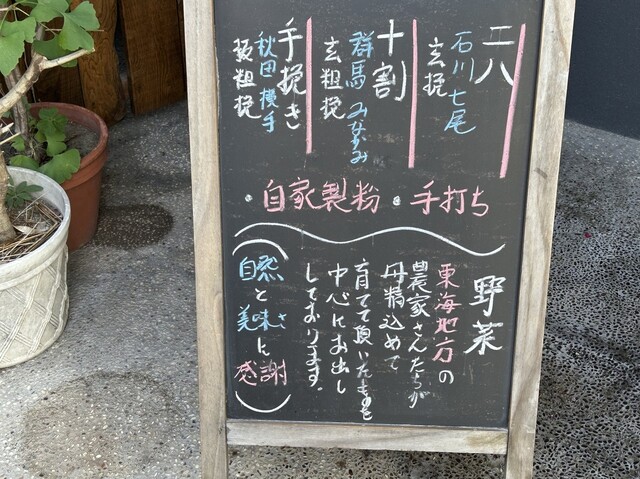 二八
石川 七尾
玄挽
十割
群馬 みなかみ
玄粗挽
手挽き
秋田 横手
玄粗挽
・自家製粉・手打ち
野菜
東海地方の
農家さんたちが
丹精込めて
育てて頂いたものを
中心にお出し
しております。
自然と美味さに感謝